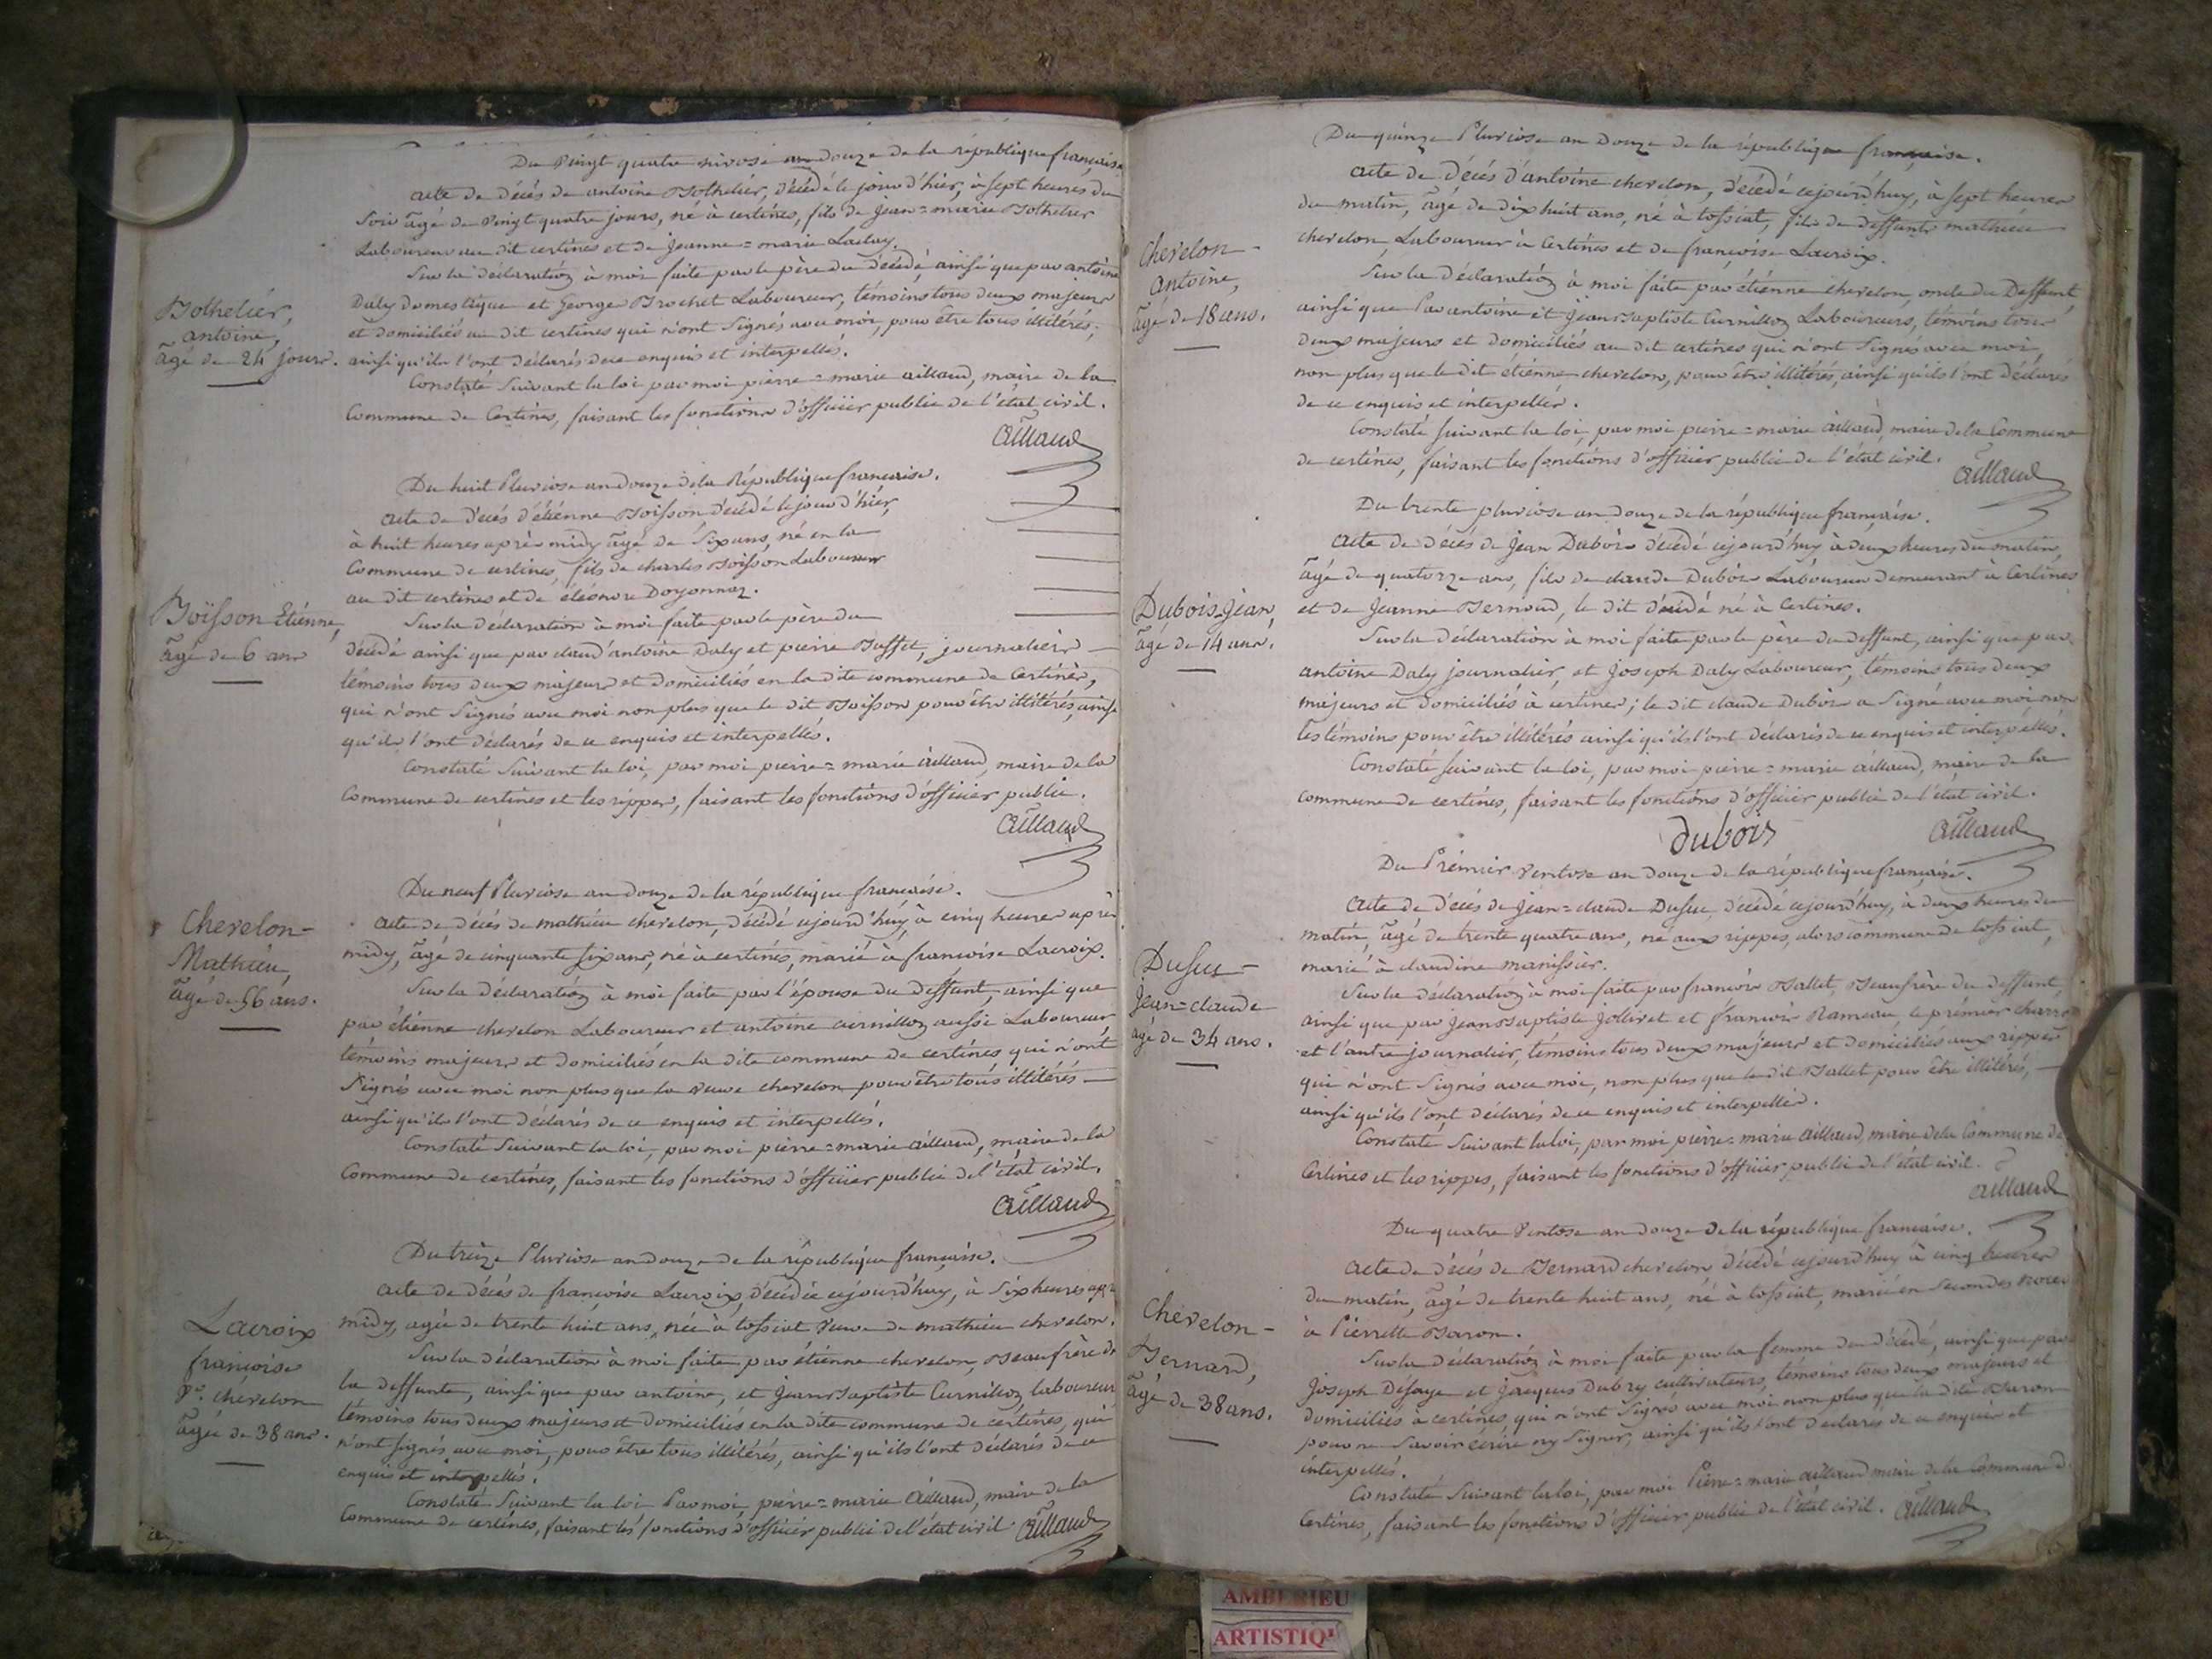 Du Vingt quatre nivose an douze de la république française
acte de décés de antoine Bothelier, décédé le jour d'hier, à sept heures du
soir âgé de Vingt quatre jours, né à certines, fils de jean=marie Bothelier
Laboureur au dit certines et de jeanne=marie
Sur la déclaration à moi faite par le père du décédé, ainsi que par antoine
Daly domestique et George Brochet Laboureur, témoins tous deux majeurs
et domiciliés au dit certines qui n'ont signés avec moi, pour être tous illitérés,
ainsi qu'ils l'ont déclarés de ce enquis et interpellés.
Constaté suivant la loi par moi pierre=marie aillaud, maire de la
Commune de Certines, faisant les fonctions d'officier public de l'état civil.
aillaud
Bothelier,
antoine,
âgé de 24 jours.
Du huit Pluviose an douze de la République française.
acte de décés d'étienne Boisson décédé le jour d'hier,
à huit heures après midy âgé de six ans, né en la
Commune de certines, fils de charles Boisson Laboureur
au dit certines et de éléonore Doyonnaz.
Sur la déclaration à moi faite par le père du
décédé ainsi que par claud'antoine Daly et pierre Buffet, journaliers
témoins tous deux majeurs et domiciliés en la dite commune de Certines,
qui n'ont signés avec moi non plus que le dit Boisson pour être illitérés, ainsi
qu'ils l'ont déclarés de ce enquis et interpellés.
Constaté suivant la loi, par moi pierre=marie aillaud, maire de la
Commune de certines et les rippes, faisant les fonctions d'officier public.
aillaud
Boïsson Etiénne,
âgé de 6 ans
Du neuf Pluviose an douze de la république française.
acte de décés de mathieu chevelon, décédé cejourd'huy, à cinq heures après
midy, âgé de cinquante six ans, né à certines, marié à françoise Lacroix.
Sur la déclaration à moi faite par l'épouse du deffunt, ainsi que
par étienne chevelon Laboureur et antoine curnilloz aussi Laboureur
témoins majeurs et domiciliés en la dite commune de certines, qui n'ont
signés avec moi non plus que la veuve chevelon pour être tous illitérés
ainsi qu'ils l'ont déclarés de ce enquis et interpellés.
Constaté suivant la loi, par moi pierre=marie aillaud, maire de la
Commune de certines, faisant les fonctions d'officier public de l'état civil.
aillaud
Chevelon
Mathieu,
âgé de 56 ans.
Du treize Pluviose an douze de la république française.
acte de décés de françoise Lacroix, décédée cejourd'huy, à six heures après
midy, agée de trente huit ans, née à tossiat veuve de mathieu chevelon.
Sur la déclaration à moi faite par étienne chevelon, Beaufrère de
la deffunte, ainsi que par antoine, et jean Baptiste Curnilloz laboureurs
témoins tous deux majeurs et domiciliés en la dite commune de certines, qui
n'ont signés avec moi, pour être tous illitérés, ainsi qu'ils l'ont déclarés de ce
enquis et interpellés.
Constaté suivant la loi Par moi, pierre=marie aillaud, maire de la
Commune de certines, faisant les fonctions d'officier public de l'état civil aillaud
Lacroix
françoise
Ve. chevelon
âgée de 38 ans.
Du quinze Pluviose an douze de la république française.
acte de décés d'antoine chevelon, décédé cejourd'huy, à sept heures
du matin, âgé de dix huit ans, né à tossiat, fils de deffunts mathieu
chevelon Laboureur à Certines et de françoise Lacroix.
Sur la déclaration à moi faite par étienne chevelon, oncle du Deffunt,
ainsi que Par antoine et jean Baptiste Curnilloz Laboureurs, témoins tous
deux majeurs et domiciliés au dit certines qui n'ont signés avec moi,
non plus que le dit étienne chevelon, pour être illitérés, ainsi qu'ils l'ont déclarés
de ce enquis et interpellés.
Constaté suivant la loi, par moi pierre=marie aillaud, maire de la Commune
de certines, faisant les fonctions d'officier public de l'état civil.
aillaud
Chevelon
antoine,
âgé de 18 ans.
Du trente pluviose an douze de la république française.
acte de décés de jean Dubois décédé cejourd'huy à deux heures du matin,
âgé de quatorze ans, fils de claude Dubois Laboureur demeurant à Certines
et de jeanne Bernoud, le dit décédé né à Certines.
Sur la déclaration à moi faite par le père du deffunt, ainsi que par
antoine Daly journalier, et joseph Daly Laboureur, témoins tous deux
majeurs et domiciliés à certines; le dit claude Dubois a signé avec moi non
les témoins pour être illitérés ainsi qu'ils l'ont déclarés de ce enquis et interpellés.
Constaté suivant la loi, par moi pierre=marie aillaud, maire de la
commune de certines, faisant les fonctions d'officier public de l'état civil.
dubois aillaud
Dubois jean,
âgé de 14 ans.
Du Prémier Ventose an douze de la république française.
acte de décés de jean=claude Dufuc, décédé cejourd'huy, à deux heures du
matin, âgé de trente quatre ans, né aux rippes, alors commune de tossiat,
marié à claudine manissier.
Sur la déclaration à moi faite par françois Ballet, Beaufrère du deffunt,
ainsi que par jean Baptiste jollivet et françois Rameau, le prémier charron
et l'autre journalier, témoins tous deux majeurs et domiciliés aux rippes
qui n'ont signés avec moi, non plus que le dit Ballet pour être illitérés,
ainsi qu'ils l'ont déclarés de ce enquis et interpellés.
Constaté suivant la loi, par moi pierre=marie aillaud, maire de la Commune de
Certines et les rippes, faisant les fonctions d'officier public de l'état civil.
aillaud
Dufuc
jean=claude
agé de 34 ans.
Du quatre Ventose an douze de la république française.
acte de décés de Bernard chevelon décédé cejourd'huy à cinq heures
du matin, âgé de trente huit ans, né à tossiat, marié en secondes noces
à Pierrette Baron.
Sur la déclaration à moi faite par la femme du décédé, ainsi que par
joseph Défaye et jacques Dubry cultivateurs, témoins tous deux majeurs et
domiciliés à certines, qui n'ont signés avec moi non plus que la dite Baron
pour ne savoir écrire ny signer, ainsi qu'ils l'ont déclarés de ce enquis et
interpellés.
Constaté suivant la loi, par moi Pierre=marie aillaud maire de la Commune de
Certines, faisant les fonctions d'officier public de l'état civil. aillaud
Chevelon
Bernard,
âgé de 38 ans.
AMBERIEU
ARTISTIQU